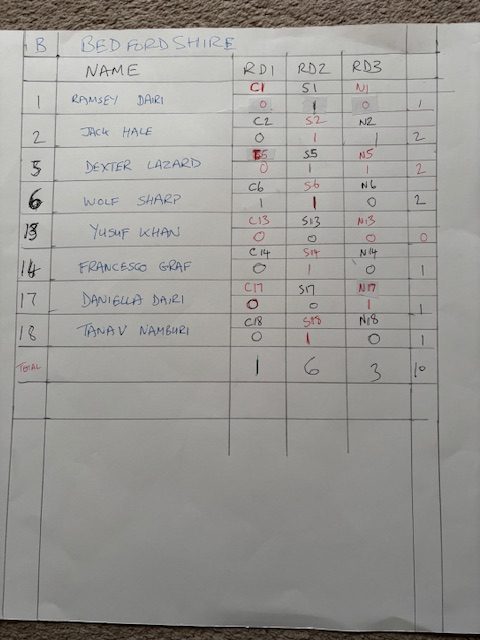 B BEDFORDSHIRE
NAME RD1 RD2 RD3
C1 S1 N1
1 RAMSEY DAIRI 0 1 0 1
C2 S2 N2
2 JACK HALE 0 1 1 2
C5 S5 N5
5 DEXTER LAZARD 0 1 1 2
C6 S6 N6
6 WOLF SHARP 1 1 0 2
C13 S13 N13
13 YUSUF KHAN 0 0 0 0
C14 S14 N14
14 FRANCESCO GRAF 0 1 0 1
C17 S17 N17
17 DANIELLA DAIRI 0 0 1 1
C18 S18 N18
18 TANAV NAMBURI 0 1 0 1
TOTAL 1 6 3 10